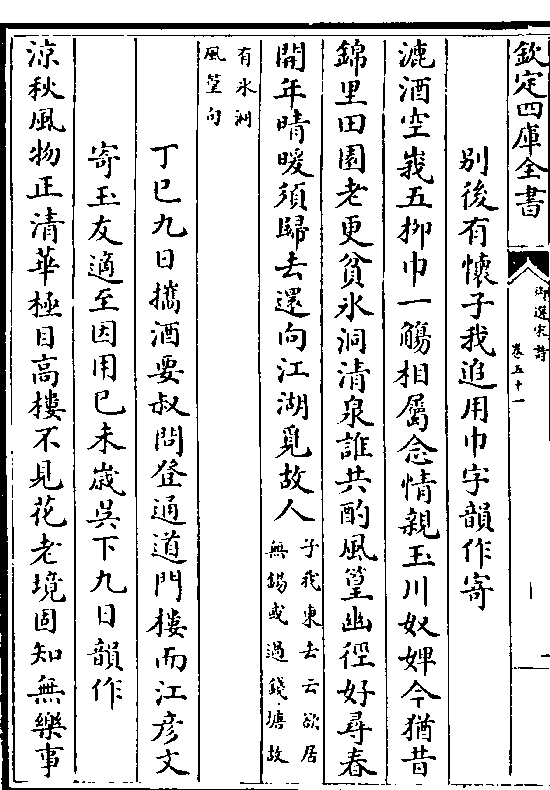 欽定四庫全書
御選宋詩
卷五十一
別後有懷子我追用巾字韻作寄
漉酒空峩五柳巾一觴相屬念情親玉川奴婢今猶昔
錦里田園老更貧氷洞清泉誰共酌風篁幽徑好尋春
開年晴暖須歸去還向江湖覓故人子我東去云欲居
無錫或過錢塘故
有氷洞
風篁句
丁巳九日攜酒要叔問登通道門樓而江彥文
寄玉友適至因用巳未歲吳下九日韻作
涼秋風物正清華極目高樓不見花老境固知無樂事